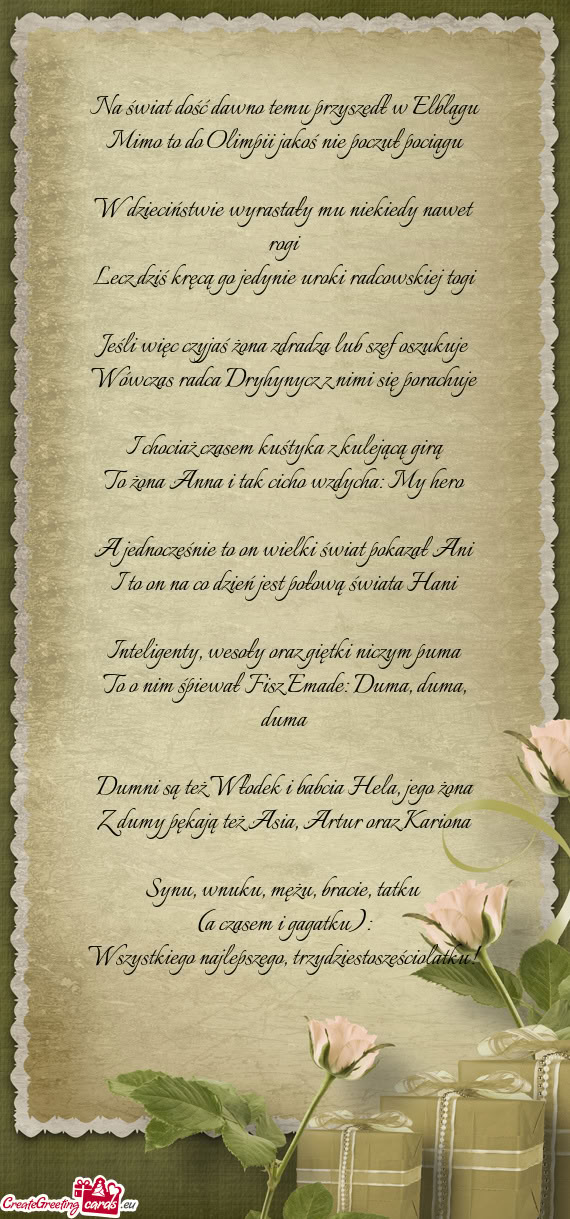 Na świat dość dawno temu przyszedł w Elblągu
Mimo to do Olimpii jakoś nie poczuł pociągu
W dzieciństwie wyrastały mu niekiedy nawet
rogi
Lecz dziś kręcą go jedynie uroki radcowskiej togi
Jeśli więc czyjaś żona zdradza lub szef oszukuje
Wówczas radca Dryhynycz z nimi się porachuje
I chociaż czasem kuśtyka z kulejącą girą
To żona Anna i tak cicho wzdycha: My hero
A jednocześnie to on wielki świat pokazał Ani
I to on na co dzień jest połową świata Hani
Inteligenty, wesoły oraz giętki niczym puma
To o nim śpiewał Fisz Emade: Duma, duma,
duma
Dumni są też Włodek i babcia Hela, jego żona
Z dumy pękają też Asia, Artur oraz Kariona
Synu, wnuku, mężu, bracie, tatku
(a czasem i gagatku):
Wszystkiego najlepszego, trzydziestosześciolatku!
CreateGreetingcards.eu